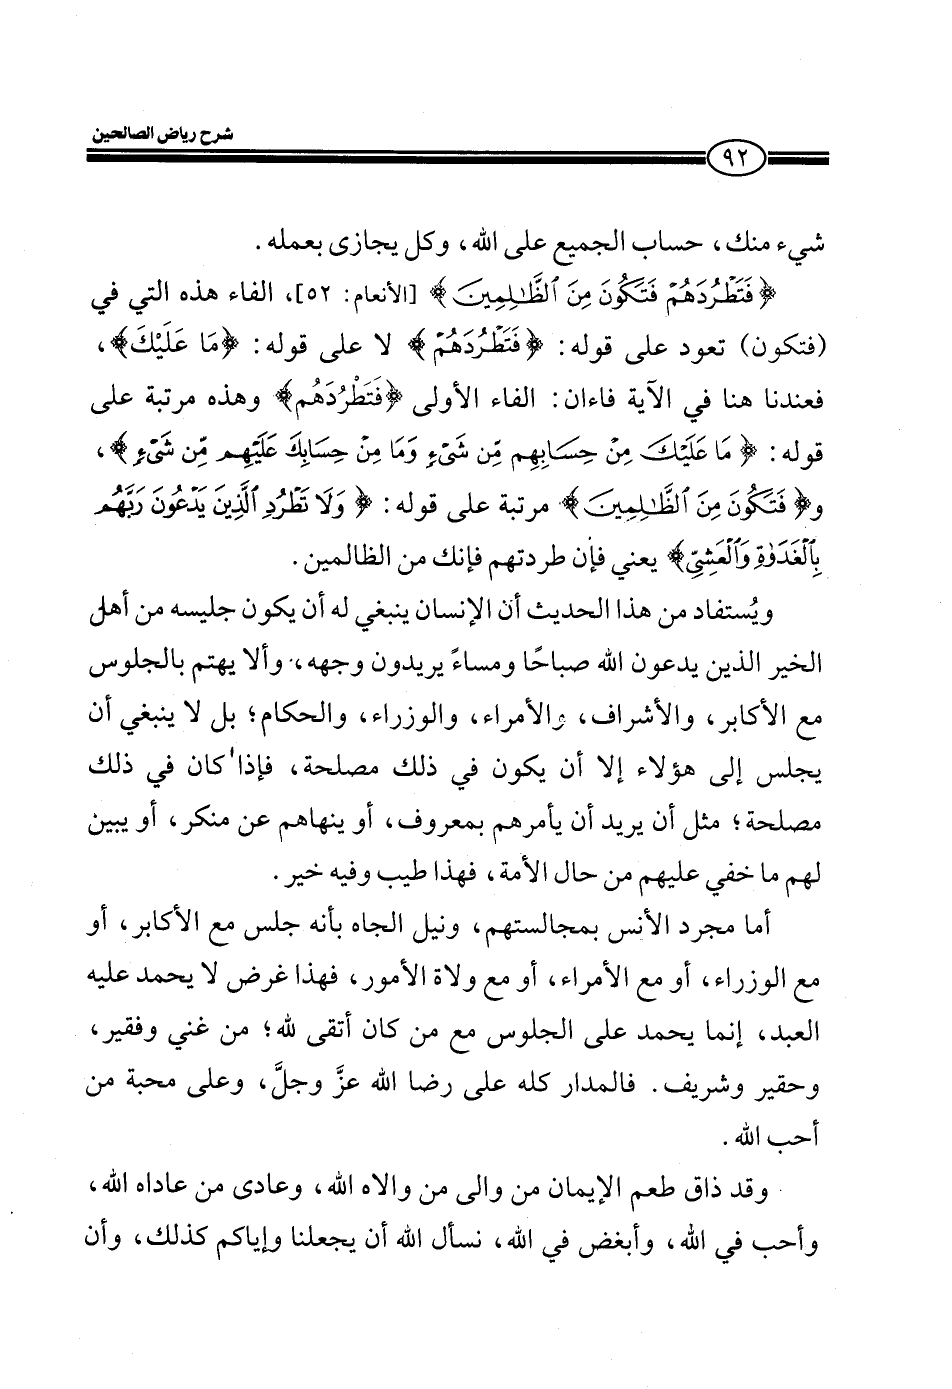 شرح رياض الصالحين
٩٢
شيء منك، حساب الجميع على الله، وكل يجازى بعمله.
﴿فَتَطْرُدَهُمْ فَتَكُونَ مِنَ ٱلظَّٰلِمِينَ﴾ [الأنعام: ٥٢]، الفاء هذه التي في
(فتكون) تعود على قوله: ﴿فَتَطْرُدَهُمْ﴾ لا على قوله: ﴿مَا عَلَيْكَ﴾،
فعندنا هنا في الآية فاءان: الفاء الأولى ﴿فَتَطْرُدَهُم﴾ وهذه مرتبة على
قوله: ﴿مَا عَلَيْكَ مِنْ حِسَابِهِم مِّن شَىْءٍ وَمَا مِنْ حِسَابِكَ عَلَيْهِم مِّن شَىْءٍ﴾،
و﴿فَتَكُونَ مِنَ ٱلظَّٰلِمِينَ﴾ مرتبة على قوله: ﴿وَلَا تَطْرُدِ ٱلَّذِينَ يَدْعُونَ رَبَّهُم
بِٱلْغَدَوٰةِ وَٱلْعَشِىِّ﴾ يعني فإن طردتهم فإنك من الظالمين.
ويُستفاد من هذا الحديث أن الإنسان ينبغي له أن يكون جليسه من أهل
الخير الذين يدعون الله صباحًا ومساءً يريدون وجهه، وألا يهتم بالجلوس
مع الأكابر، والأشراف، والأمراء، والوزراء، والحكام؛ بل لا ينبغي أن
يجلس إلى هؤلاء إلا أن يكون في ذلك مصلحة، فإذا كان في ذلك
مصلحة؛ مثل أن يريد أن يأمرهم بمعروف، أو ينهاهم عن منكر، أو يبين
لهم ما خفي عليهم من حال الأمة، فهذا طيب وفيه خير.
أما مجرد الأنس بمجالستهم، ونيل الجاه بأنه جلس مع الأكابر، أو
مع الوزراء، أو مع الأمراء، أو مع ولاة الأمور، فهذا غرض لا يحمد عليه
العبد، إنما يحمد على الجلوس مع من كان أتقى لله؛ من غني وفقير،
وحقير وشريف. فالمدار كله على رضا الله عزَّ وجلَّ، وعلى محبة من
أحب الله.
وقد ذاق طعم الإيمان من والى من والاه الله، وعادى من عاداه الله،
وأحب في الله، وأبغض في الله، نسأل الله أن يجعلنا وإياكم كذلك، وأن